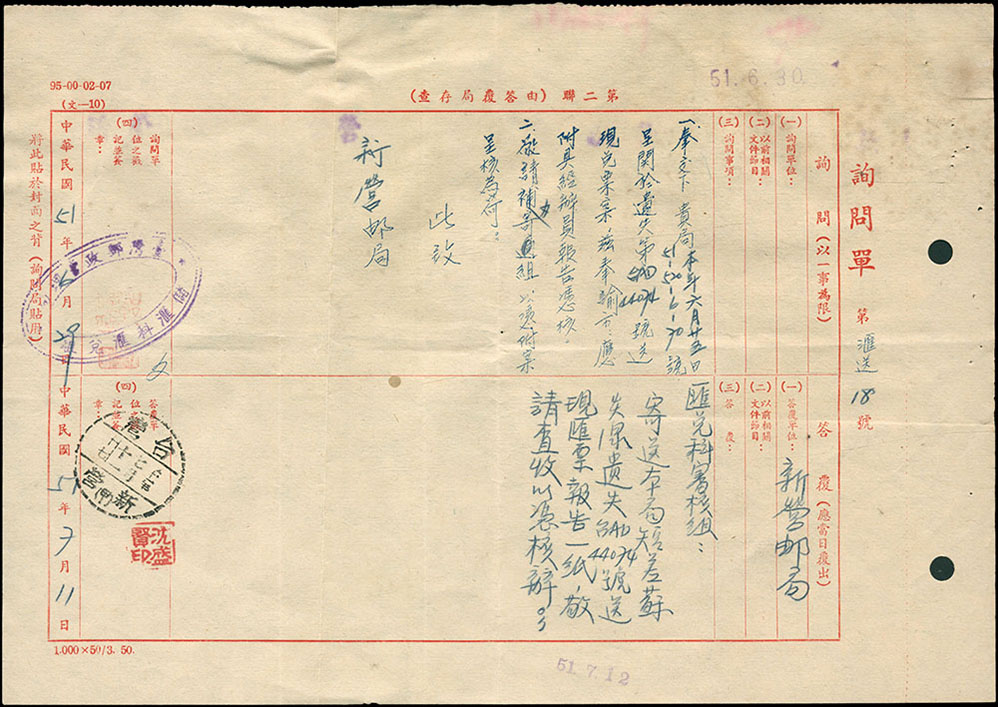 51.6.30
95-00-02-07
(文—10)
第二聯(由答覆局存查)
詢問單 第 滙送 18 號
詢問(以一事為限)
(一) 詢問單位:
(二) 以前相關文件節目
(三) 詢問事項:
一、奉交下 貴局本年六月廿五日
51-500-6-70號
呈關於遺失第 44074 號送
現兌票案,茲奉諭了應
附具經辦員報告憑核,
二、敬請補寄過組以憑附案
呈核為荷:
此致
新營郵局
(四) 詢問單位之戳記並簽章:
中華民國 51 年 6 月 29 日
將此貼於封面之背(詢問局貼用)
答覆(應當日復出)
(一) 答覆單位: 新營郵局
(二) 以前相關文件節目
(三) 答覆:
匯兌科審核組:
寄送本局短差蘇
失保遺失 44074 號送
現匯票報告一紙,敬
請查收以憑核辦。
(四) 答覆單位之戳記並簽章:
台營
新營
沈盛賢印
中華民國 51 年 7 月 11 日
1.000×50/3. 50.
51.7.12